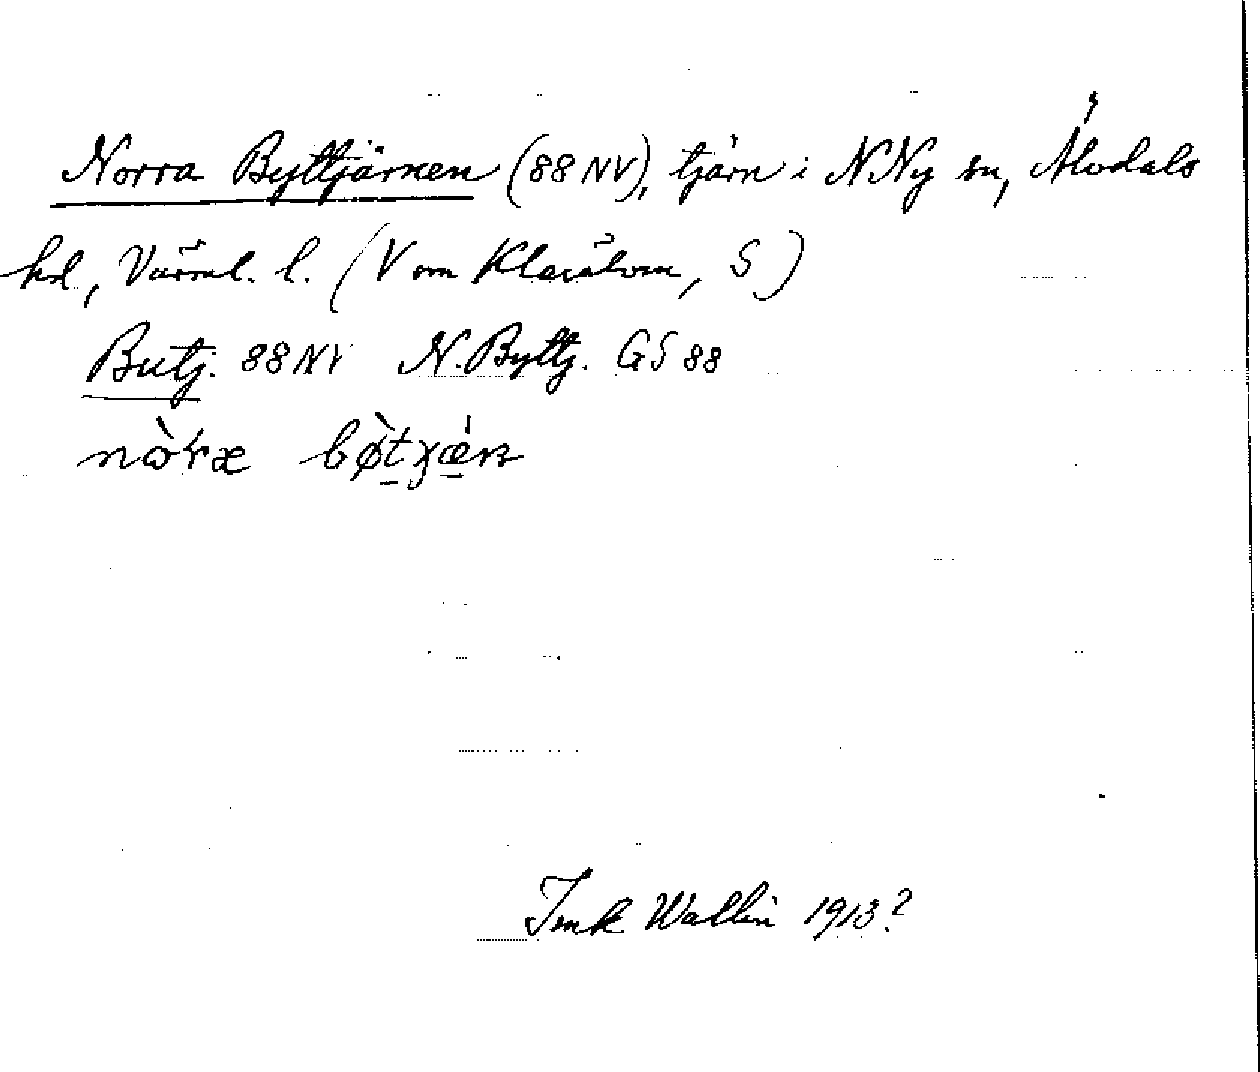 Norra Byttjärnen (88 NV), tjärn i N Ny sn, Älvdals
hd, Värml. l. (V om Klarälven, S)
Butj. 88 NV N. Byttj. GS 88
nòræ bø̀tjæ̀rn
Ink Wallin 1913?